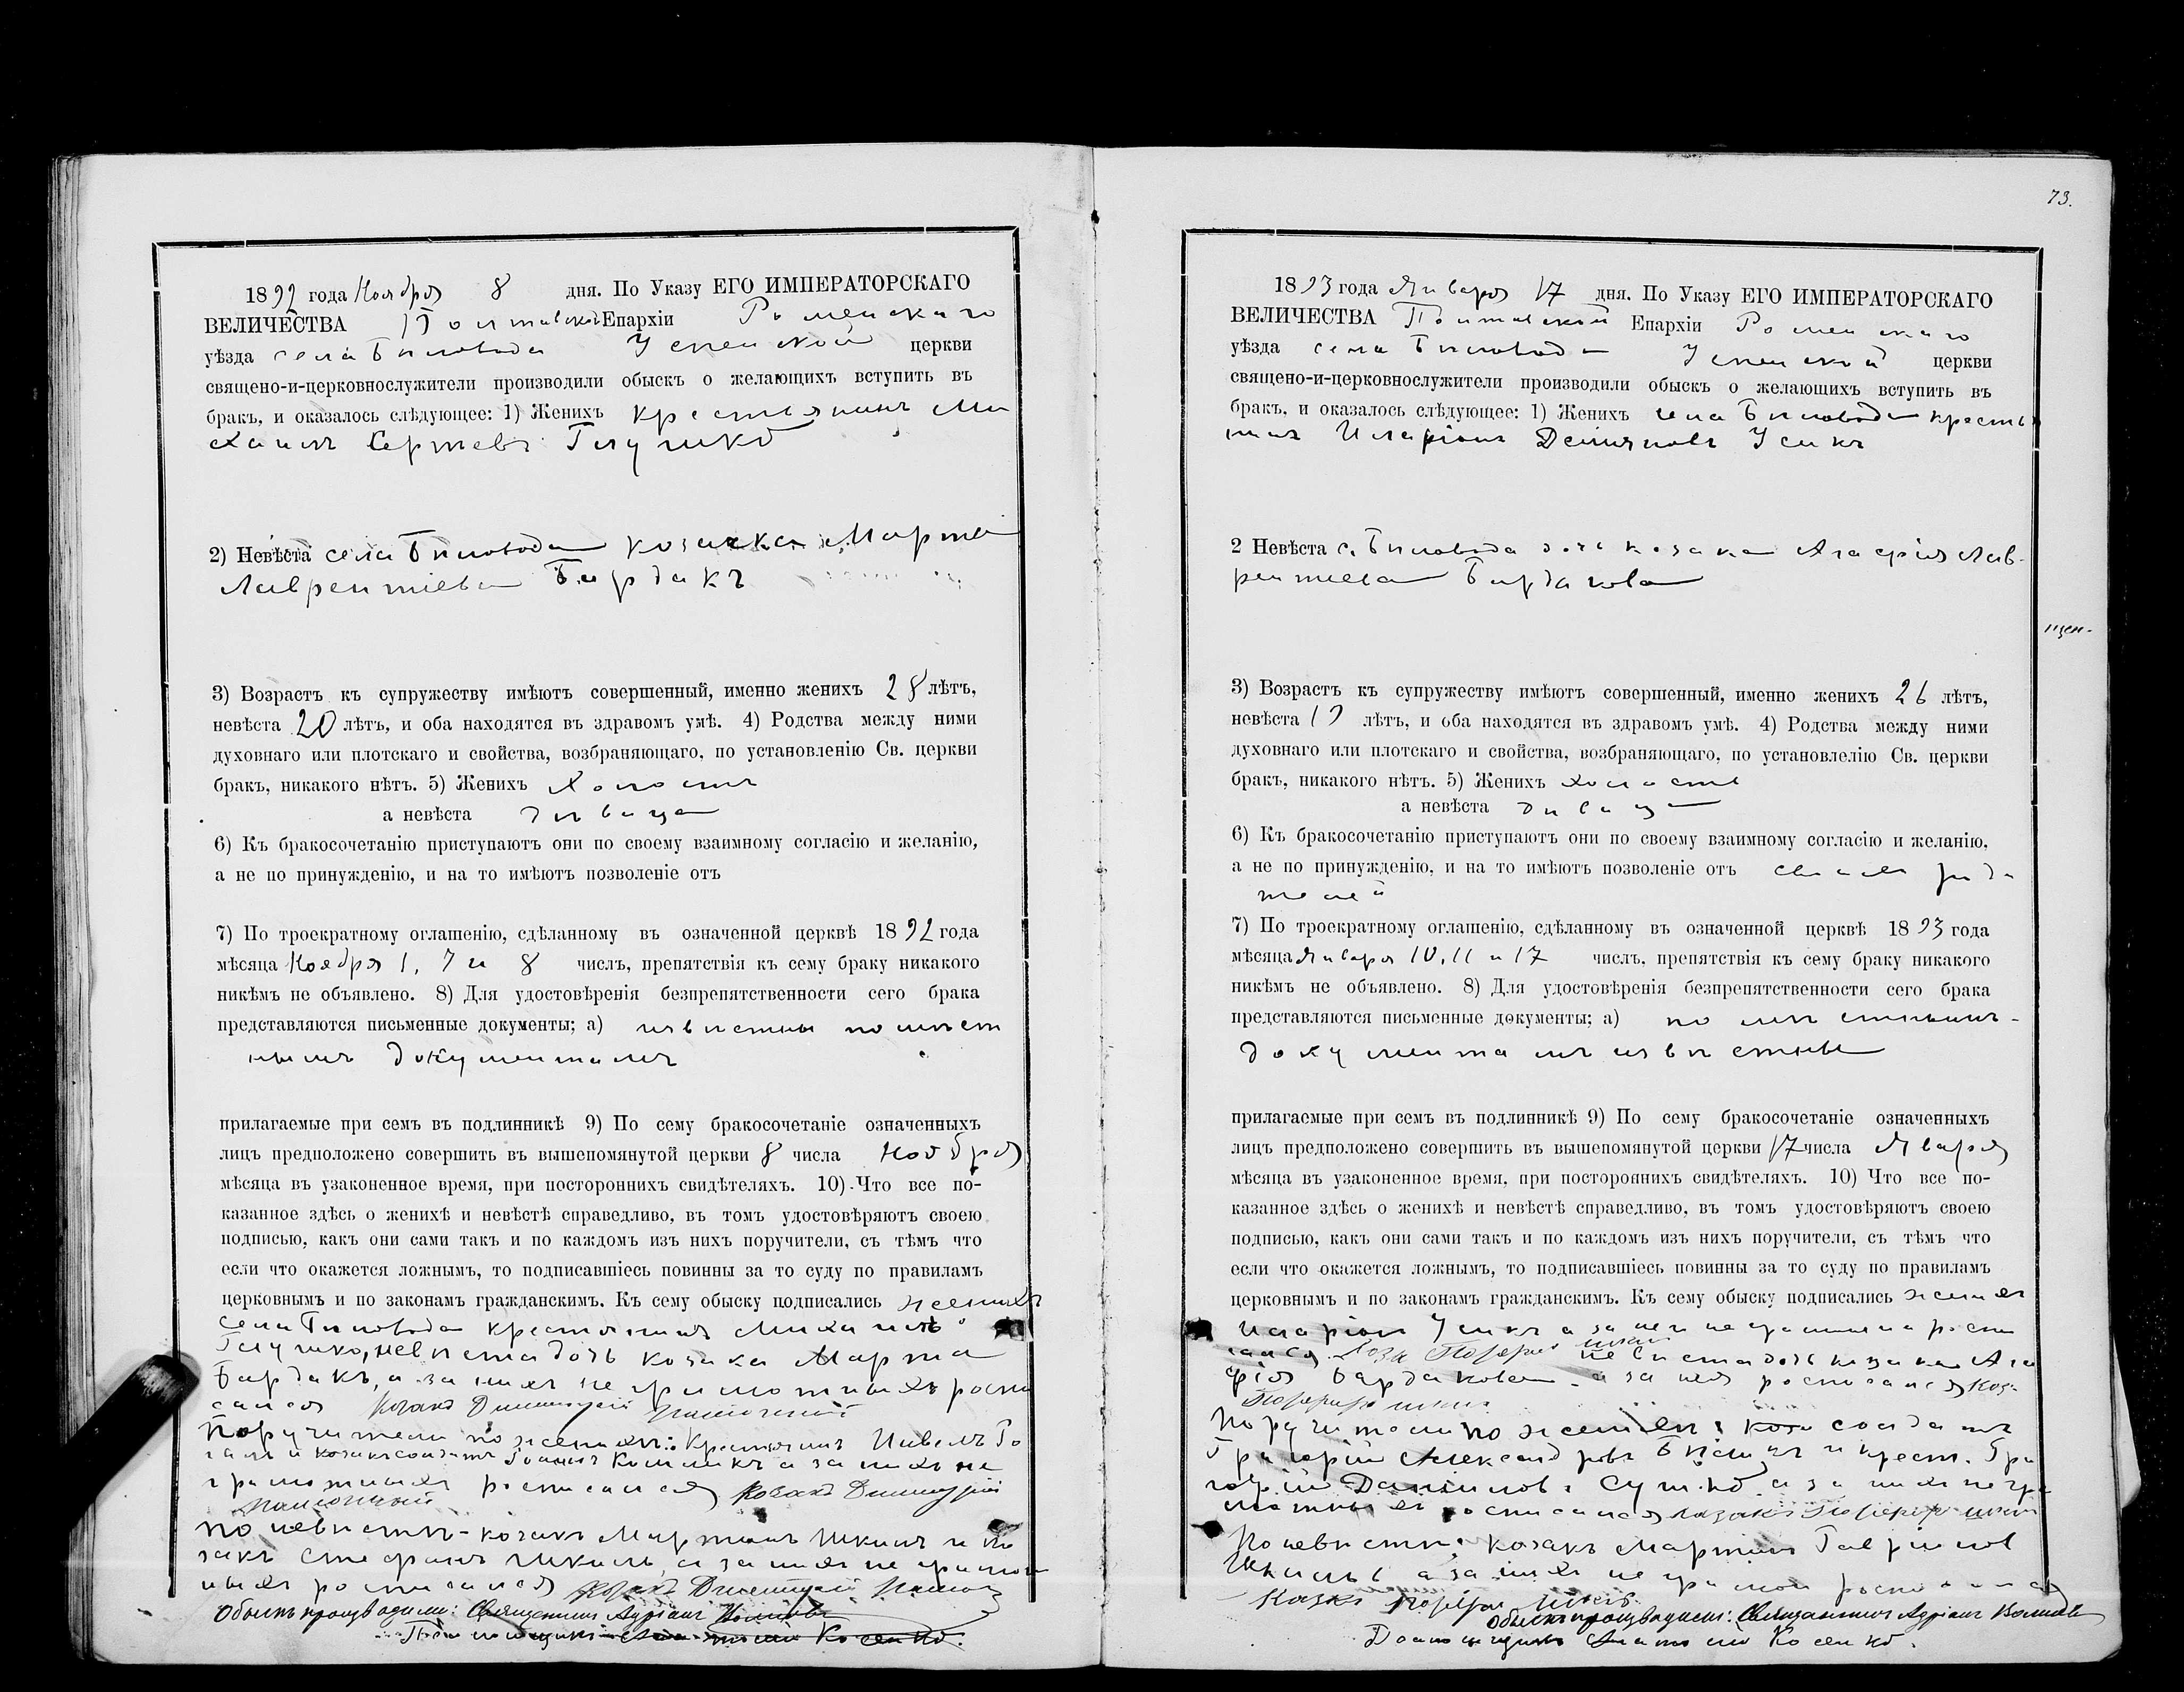 1892 года Ноября 8 дня. По Указу ЕГО ИМПЕРАТОРСКАГО
ВЕЛИЧЕСТВА Полтавской Епархіи Роменскаго
уѣзда села Биловода Успенской церкви
священо-и-церковнослужители производили обыскъ о желающихъ вступить въ
бракъ, и оказалось слѣдующее: 1) Женихъ крестьянинъ Ми
хаилъ Сергіевъ Глушко
2) Невѣста села Биловода козачка Марта
Лаврентіева Бардакъ
3) Возрастъ къ супружеству имѣютъ совершенный, именно женихъ 28 лѣтъ,
невѣста 20 лѣтъ, и оба находятся въ здравомъ умѣ. 4) Родства между ними
духовнаго или плотскаго и свойства, возбраняющаго, по установленію Св. церкви
бракъ, никакого нѣтъ. 5) Женихъ холостъ
а невѣста дивица
6) Къ бракосочетанію приступаютъ они по своему взаимному согласію и желанію,
а не по принужденію, и на то имѣютъ позволеніе отъ
7) По троекратному оглашенію, сдѣланному въ означенной церквѣ 1892 года
мѣсяца Ноября 1, 7 и 8 числъ, препятствія къ сему браку никакого
никѣмъ не объявлено. 8) Для удостовѣренія безпрепятственности сего брака
представляются письменные документы; а) извѣстны по мѣст
нымъ документамъ
прилагаемые при семъ въ подлинникѣ 9) По сему бракосочетаніе означенныхъ
лицъ предположено совершить въ вышепомянутой церкви 8 числа Ноября
мѣсяца въ узаконенное время, при постороннихъ свидѣтеляхъ. 10) Что все по-
казанное здѣсь о женихѣ и невѣстѣ справедливо, въ томъ удостовѣряютъ своею
подписью, какъ они сами такъ и по каждомъ изъ нихъ поручители, съ тѣмъ что
если что окажется ложнымъ, то подписавшіесь повинны за то суду по правиламъ
церковнымъ и по законамъ гражданскимъ. Къ сему обыску подписались женихъ
села Биловода крестьянинъ Михаилъ
Глушко, невиста дочь козака Марта
Бардакъ, а за нихъ не грамотныхъ роспи
сался Козакъ Димитрій
Поручители по женихи: Крестьянинъ
и козакъ а за нихъ не
грамотныхъ росписался Козакъ Димитрій
по невистѣ - козакъ Мартинъ Шкиль и ко
закъ Стефанъ Шкиль, а за нихъ не грамот
ныхъ росписался Козакъ Димитрій
Обыскъ производили: Священникъ Адріанъ
Косенко.
73.
1893 года Января 17 дня. По Указу ЕГО ИМПЕРАТОРСКАГО
ВЕЛИЧЕСТВА Полтавской Епархіи Роменскаго
уѣзда села Биловода Успенской церкви
священо-и-церковнослужители производили обыскъ о желающихъ вступить въ
бракъ, и оказалось слѣдующее: 1) Женихъ села Биловода крестья
нинъ Иларіонъ Деміяновъ Усикъ
2 Невѣста с. Биловода дочь козака Агафія Лав-
рентіева Бардакова
щен-
3) Возрастъ къ супружеству имѣютъ совершенный, именно женихъ 26 лѣтъ,
невѣста 19 лѣтъ, и оба находятся въ здравомъ умѣ. 4) Родства между ними
духовнаго или плотскаго и свойства, возбраняющаго, по установлелію Св. церкви
бракъ, никакого нѣтъ. 5) Женихъ холостъ
а невѣста дивица
6) Къ бракосочетанію приступаютъ они по своему взаимному согласію и желанію,
а не по принужденію, и на то имѣютъ позволеніе отъ своихъ роди
телей
7) По троекратному оглашенію, сдѣланному въ означенной церквѣ 1893 года
мѣсяца Января 10, 11 и 17 числъ, препятствія къ сему браку никакого
никѣмъ не объявлено. 8) Для удостовѣренія безпрепятственности сего брака
представляются письменные документы; а) по мѣстнымъ
документамъ извѣстны
прилагаемые при семъ въ подлинникѣ 9) По сему бракосочетаніе означенныхъ
лицъ предположено совершить въ вышепомянутой церкви 17 числа Января
мѣсяца въ узаконенное время, при постороннихъ свидѣтеляхъ. 10) Что все по-
казанное здѣсь о женихѣ и невѣстѣ справедливо, въ томъ удостовѣряютъ своею
подписью, какъ они сами такъ и по каждомъ изъ нихъ поручители, съ тѣмъ что
если что окажется ложнымъ, то подписавшіесь повинны за то суду по правиламъ
церковнымъ и по законамъ гражданскимъ. Къ сему обыску подписались женихъ
Иларіонъ Усикъ а за него не грамотна роспи
сался невиста дочь козака Ага
фія Бардакова а за нея росписался Коз.
Поручители по женихи: солдатъ
Григорій Александровъ и крест. Гри
горій Даніиловъ а за нихъ не гра
мотныхъ росписался козакъ
По невисти: козакъ Мартинъ Гавриловъ
Шкиль а за нихъ не грамот роспи
Козакъ
Обыскъ производили: Священникъ Адріанъ
Косенко.